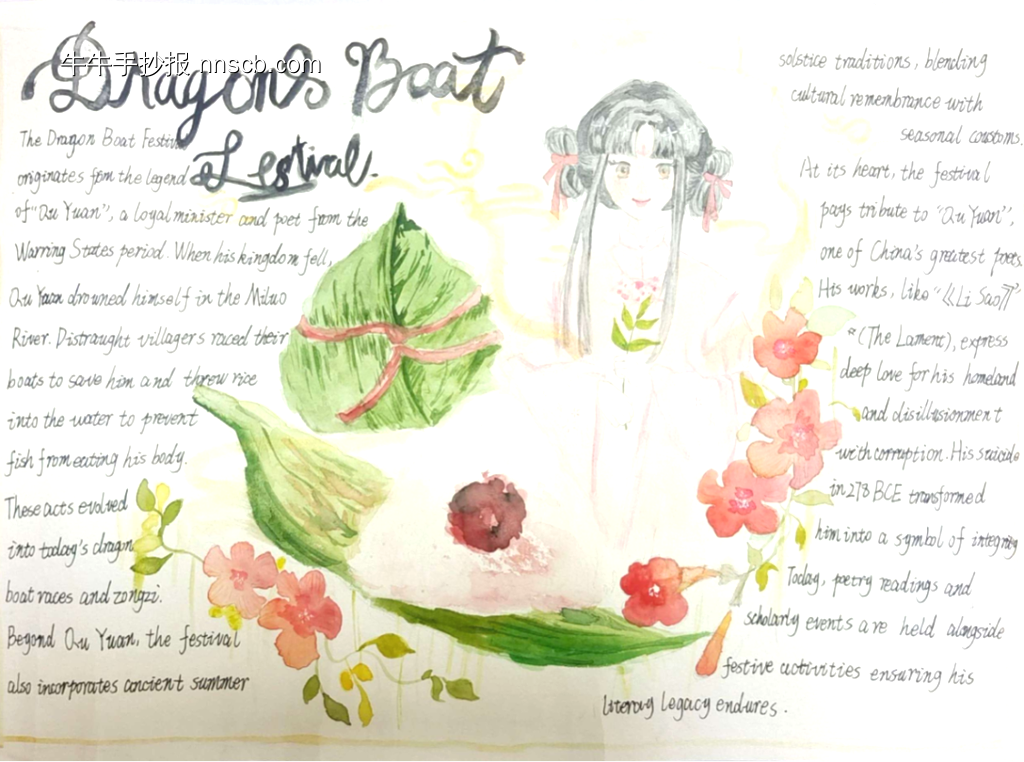 牛牛手抄报 nnscb.com
Dragon Boat
Festival.
The Dragon Boat Festival
originates from the legend
of "Qu Yuan", a loyal minister and poet from the
Warring States period. When his kingdom fell,
Qu Yuan drowned himself in the Miluo
River. Distraught villagers raced their
boats to save him and threw rice
into the water to prevent
fish from eating his body.
These acts evolved
into today's dragon
boat races and zongzi.
Beyond Qu Yuan, the festival
also incorporates ancient summer
solstice traditions, blending
cultural remembrance with
seasonal coustoms.
At its heart, the festival
pays tribute to "Qu Yuan",
one of China's greatest poets.
His works, like "《Li Sao》"
"(The Lament), express
deep love for his homeland
and disillusionment
with corruption. His suicide
in 278 BCE transformed
him into a symbol of integrity
Today, poetry readings and
scholarly events are held alongside
festive activities ensuring his
literary legacy endures.